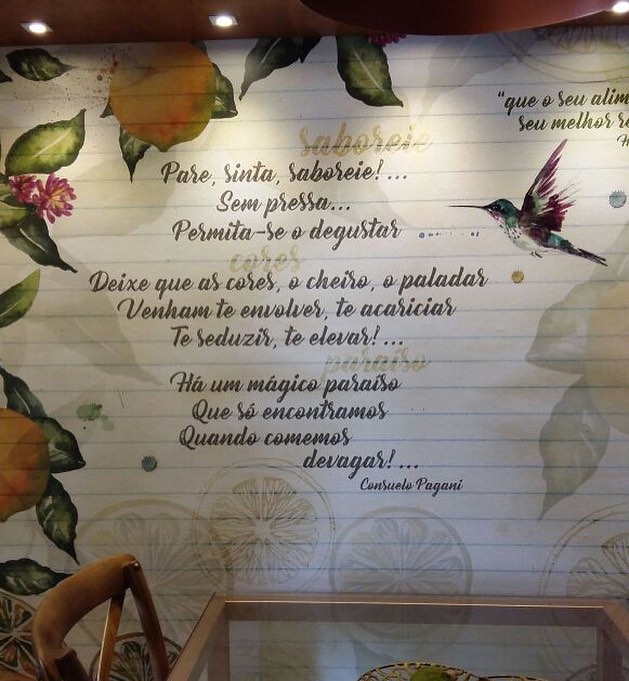 saboreie
Pare, sinta, saboreie! ...
Sem pressa...
Permita-se o degustar
cores
Deixe que as cores, o cheiro, o paladar
Venham te envolver, te acariciar
Te seduzir, te elevar! ...
paraíso
Há um mágico paraíso
Que só encontramos
Quando comemos
devagar! ...
Consuelo Pagani
"que o seu
seu melhor